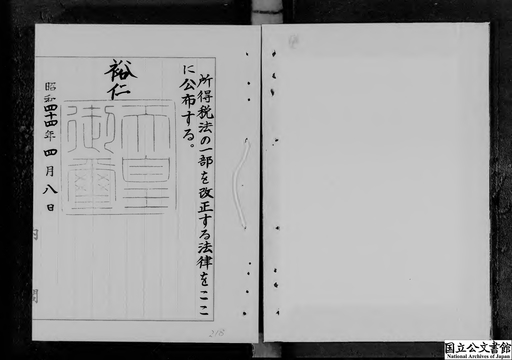 所得税法の一部を改正する法律をここ
に公布する。
裕仁
天皇
御璽
昭和四十四年四月八日
218
国立公文書館
National Archives of Japan